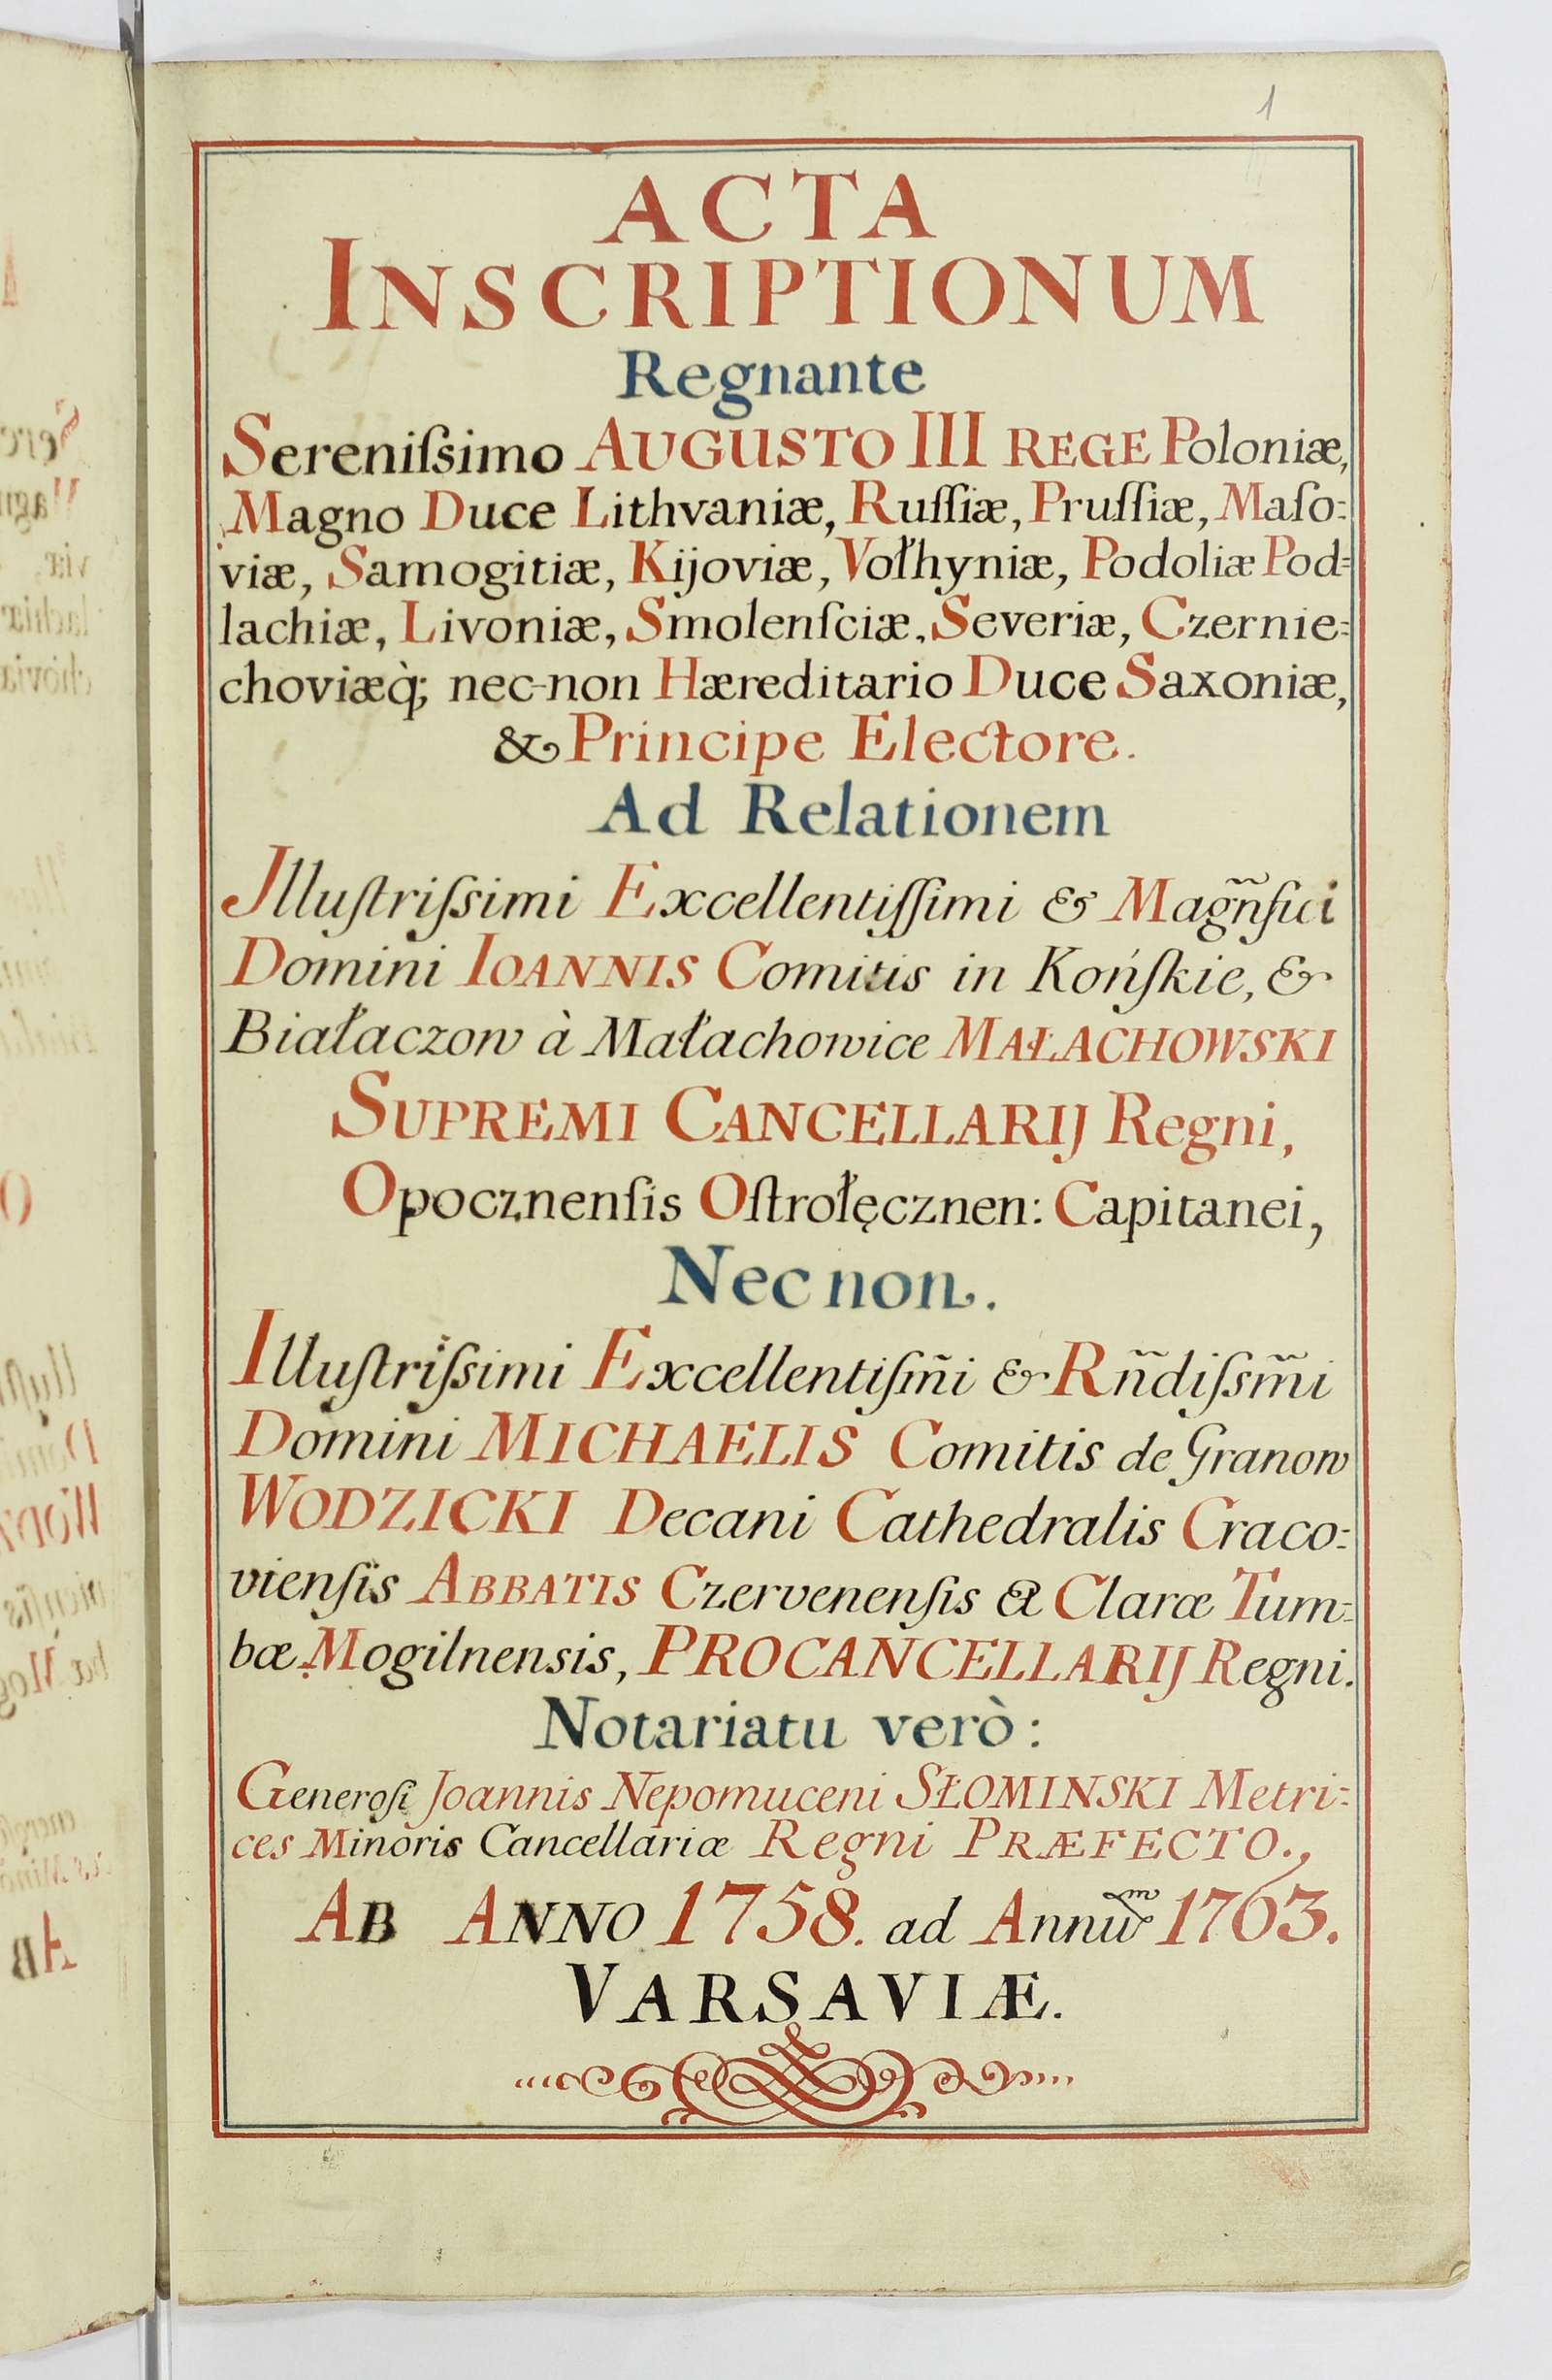 1
ACTA
INSCRIPTIONUM
Regnante
Sereniſsimo AUGUSTO III REGE Poloniæ,
Magno Duce Lithvaniæ, Ruſſiæ, Pruſſiæ, Maſo:
viæ, Samogitiæ, Kijoviæ, Vołhyniæ, Podoliæ Pod=
lachiæ, Livoniæ, Smolenſciæ, Severiæ, Czernie=
choviæq̀; nec-non Hæreditario Duce Saxoniæ,
& Principe Electore.
Ad Relationem
Jlluſtriſsimi Excellentiſſimi & Magñſici
Domini IOANNIS Comitis in Końſkie, &
Białaczow à Małachowice MAŁACHOWSKI
SUPREMI CANCELLARIJ Regni,
Opocznenſis Oſtrołęcznen: Capitanei,
Nec non.
Illuſtriſsimi Excellentiſm̃i & Rñdiſsm̃i
Domini MICHAELIS Comitis de Granow
WODZICKI Decani Cathedralis Craco:
vienſis ABBATIS Czervenenſis & Claræ Tum=
bæ Mogilnensis, PROCANCELLARIJ Regni.
Notariatu verò:
Generoſi Joannis Nepomuceni SŁOMINSKI Metri=
ces Minoris Cancellariæ Regni PRÆFECTO.,
AB ANNO 1758. ad Annũᵐ 1763.
VARSAVIÆ.